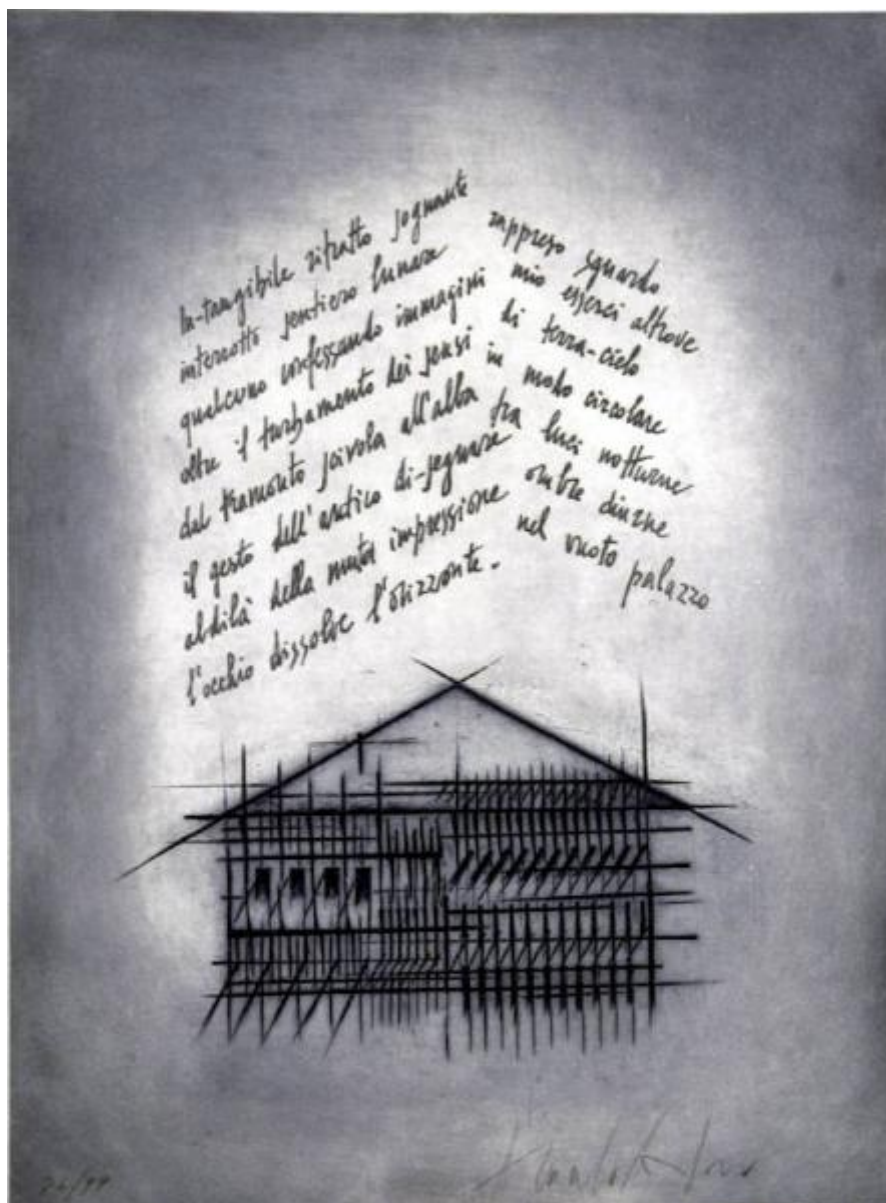 In-tangibile ritratto sognante
interrotto sentiero lunare
qualcuno confessando immagini
oltre il turbamento dei sensi
dal tramonto scivola all'alba
il gesto dell'antico di-segnare
aldilà della muta impressione
l'occhio dissolve l'orizzonte.
rappreso sguardo
mio esserci altrove
di terra-cielo
in modo circolare
tra luci notturne
ombre diurne
nel vuoto palazzo